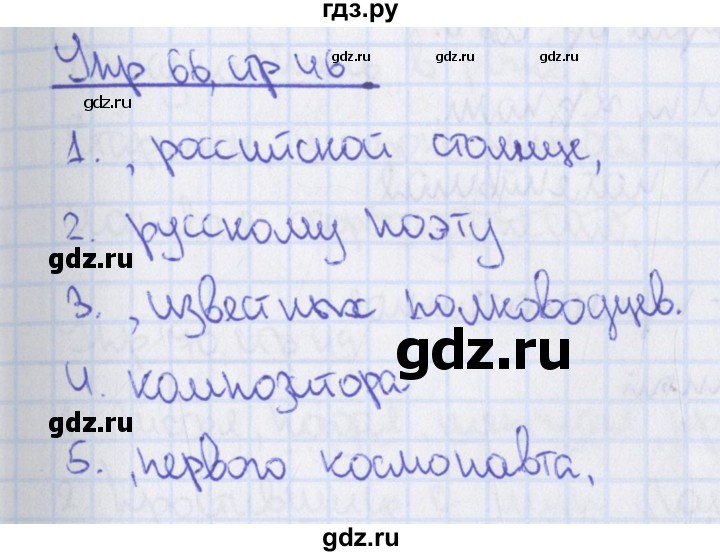 гдз.ру
Упр 66, стр 46
gdz.ru gdz.ru gdz.ru
gdz.ru
1. , российской столице,
2. русскому поэту
gdz.ru
3. , известных полководцев.
gdz.ru
4. композитора
gdz.ru
5. , первого космонавта,
gdz.ru
gdz.ru